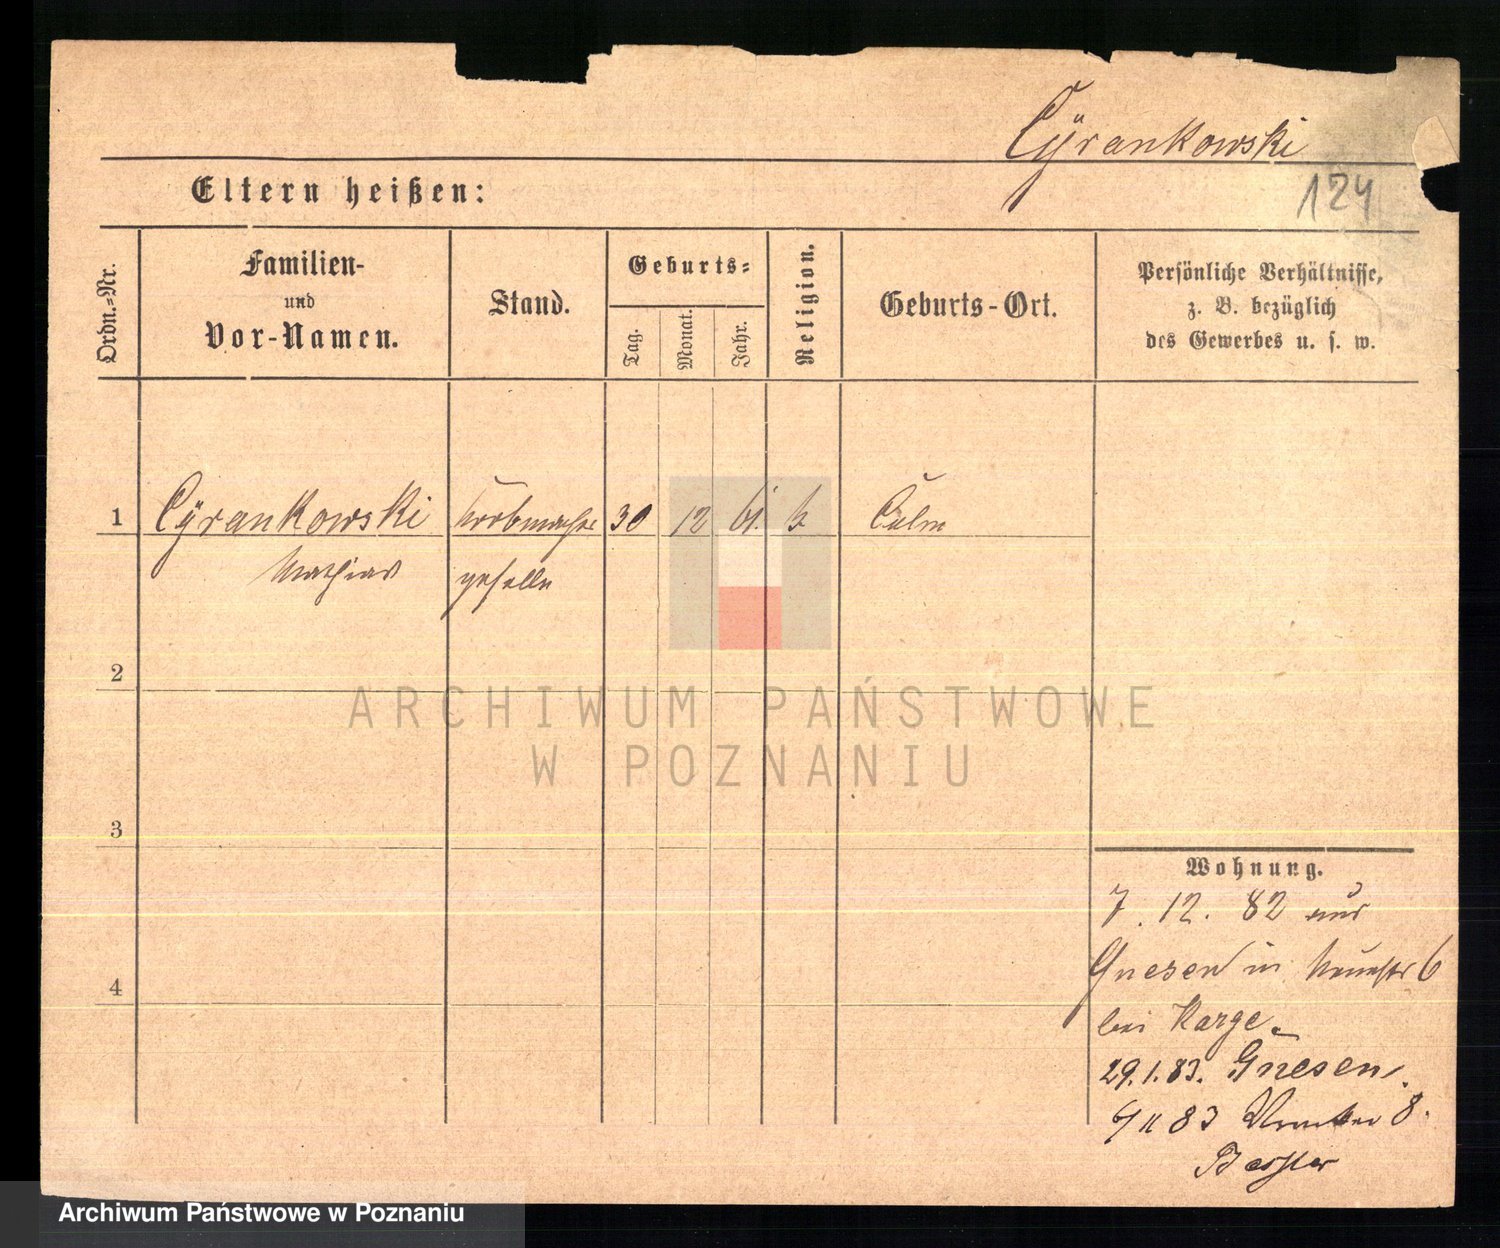 Cÿrankowski
124
Eltern heißen:
Ordn.=Nr.
Familien-
und
Vor-Namen.
Stand.
Geburts=
Tag.
Monat.
Jahr.
Religion.
Geburts-Ort.
Persönliche Verhältnisse,
z. B. bezüglich
des Gewerbes u. s. w.
1 Cÿrankowski Korbmacher 30 12 61. k Culm
Mathias geselle
2
3
4
Wohnung.
7. 12. 82 aus
Gnesen in 6
bei Karge.
29.1.83. Gnesen.
6/11 83 8.
ARCHIWUM PAŃSTWOWE
W POZNANIU
Archiwum Państwowe w Poznaniu